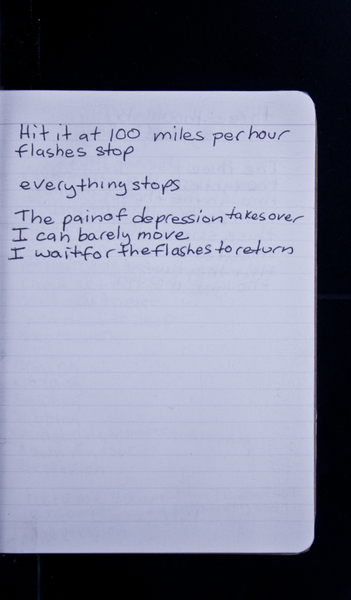 Hit it at 100 miles per hour
flashes stop
everything stops
The pain of depression takes over
I can barely move
I wait for the flashes to return